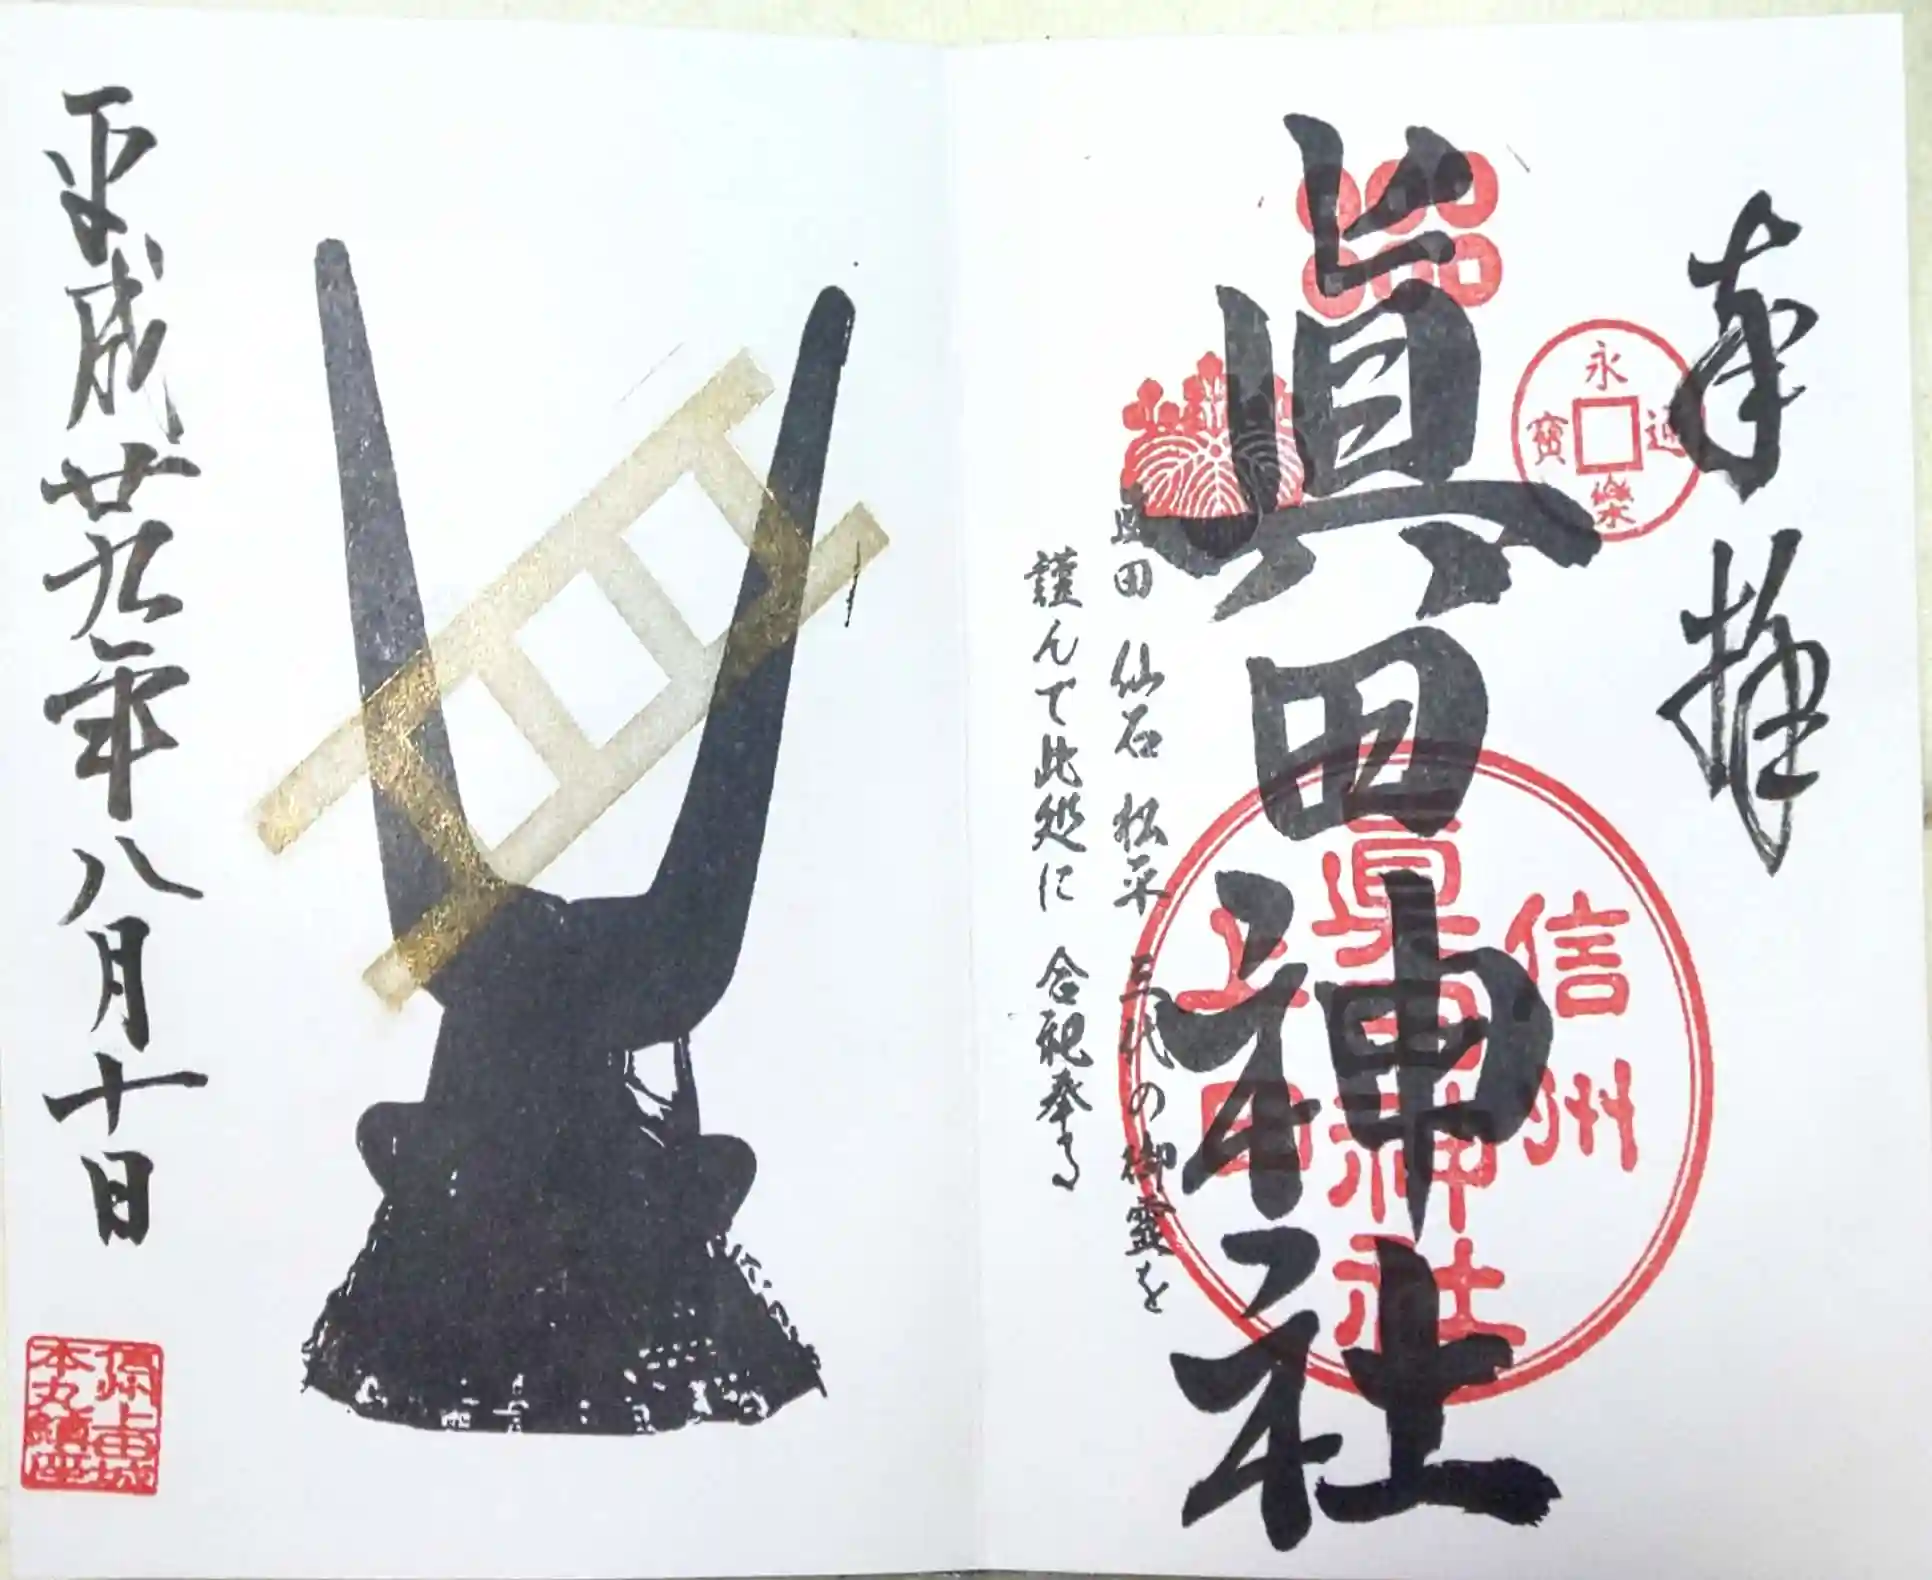 奉拝
永樂通寶
眞田神社
信州
眞田神社
上田
眞田 仙石 松平 三代の御霊を
謹んで此処に 合祀奉る
平成廿九年八月十日
上田城
本丸鎮座